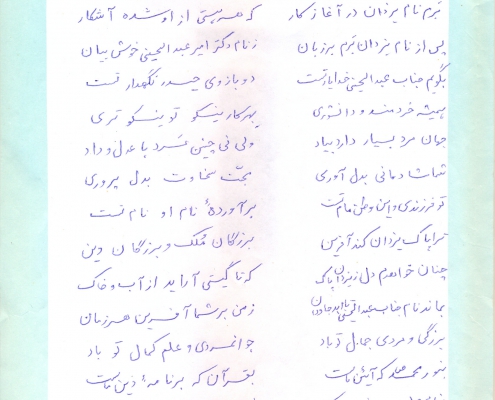 برم نام یزدان در آغاز کار که هر هستی از او شده آشکار
پس از نام یزدان برم بر زبان ز نام دکتر امیر عبدالحسینی خوش بیان
بگویم جناب عبدالحسینی خدا یارتست دو بازوی حیدر نگهدار تست
همیشه خردمند و دانشوری بهر کار نیکو تو نیکوتری
جهان مرد بسیار دارد بیاد ولی نی چنین مرد با عدل و داد
شما شادمانی بدل آوری محبت سخاوت بدل پروری
تو فرزندی و این وطن مام تست برآوردهٔ نام او نام تست
ترا پاک یزدان کند آفرین بزرگان ملک و بزرگان دین
چنان خواهم از دل ز یزدان پاک که تا گیتی آراید از آب و خاک
بماند نام جناب عبدالحسینی جاودان ز من بر شما آفرین هر زمان
بزرگی و مردی جمال تو باد جوانمردی و علم کمال تو باد
بنور محمد که آئین ماست بقرآن که برنامهٔ دین ماست